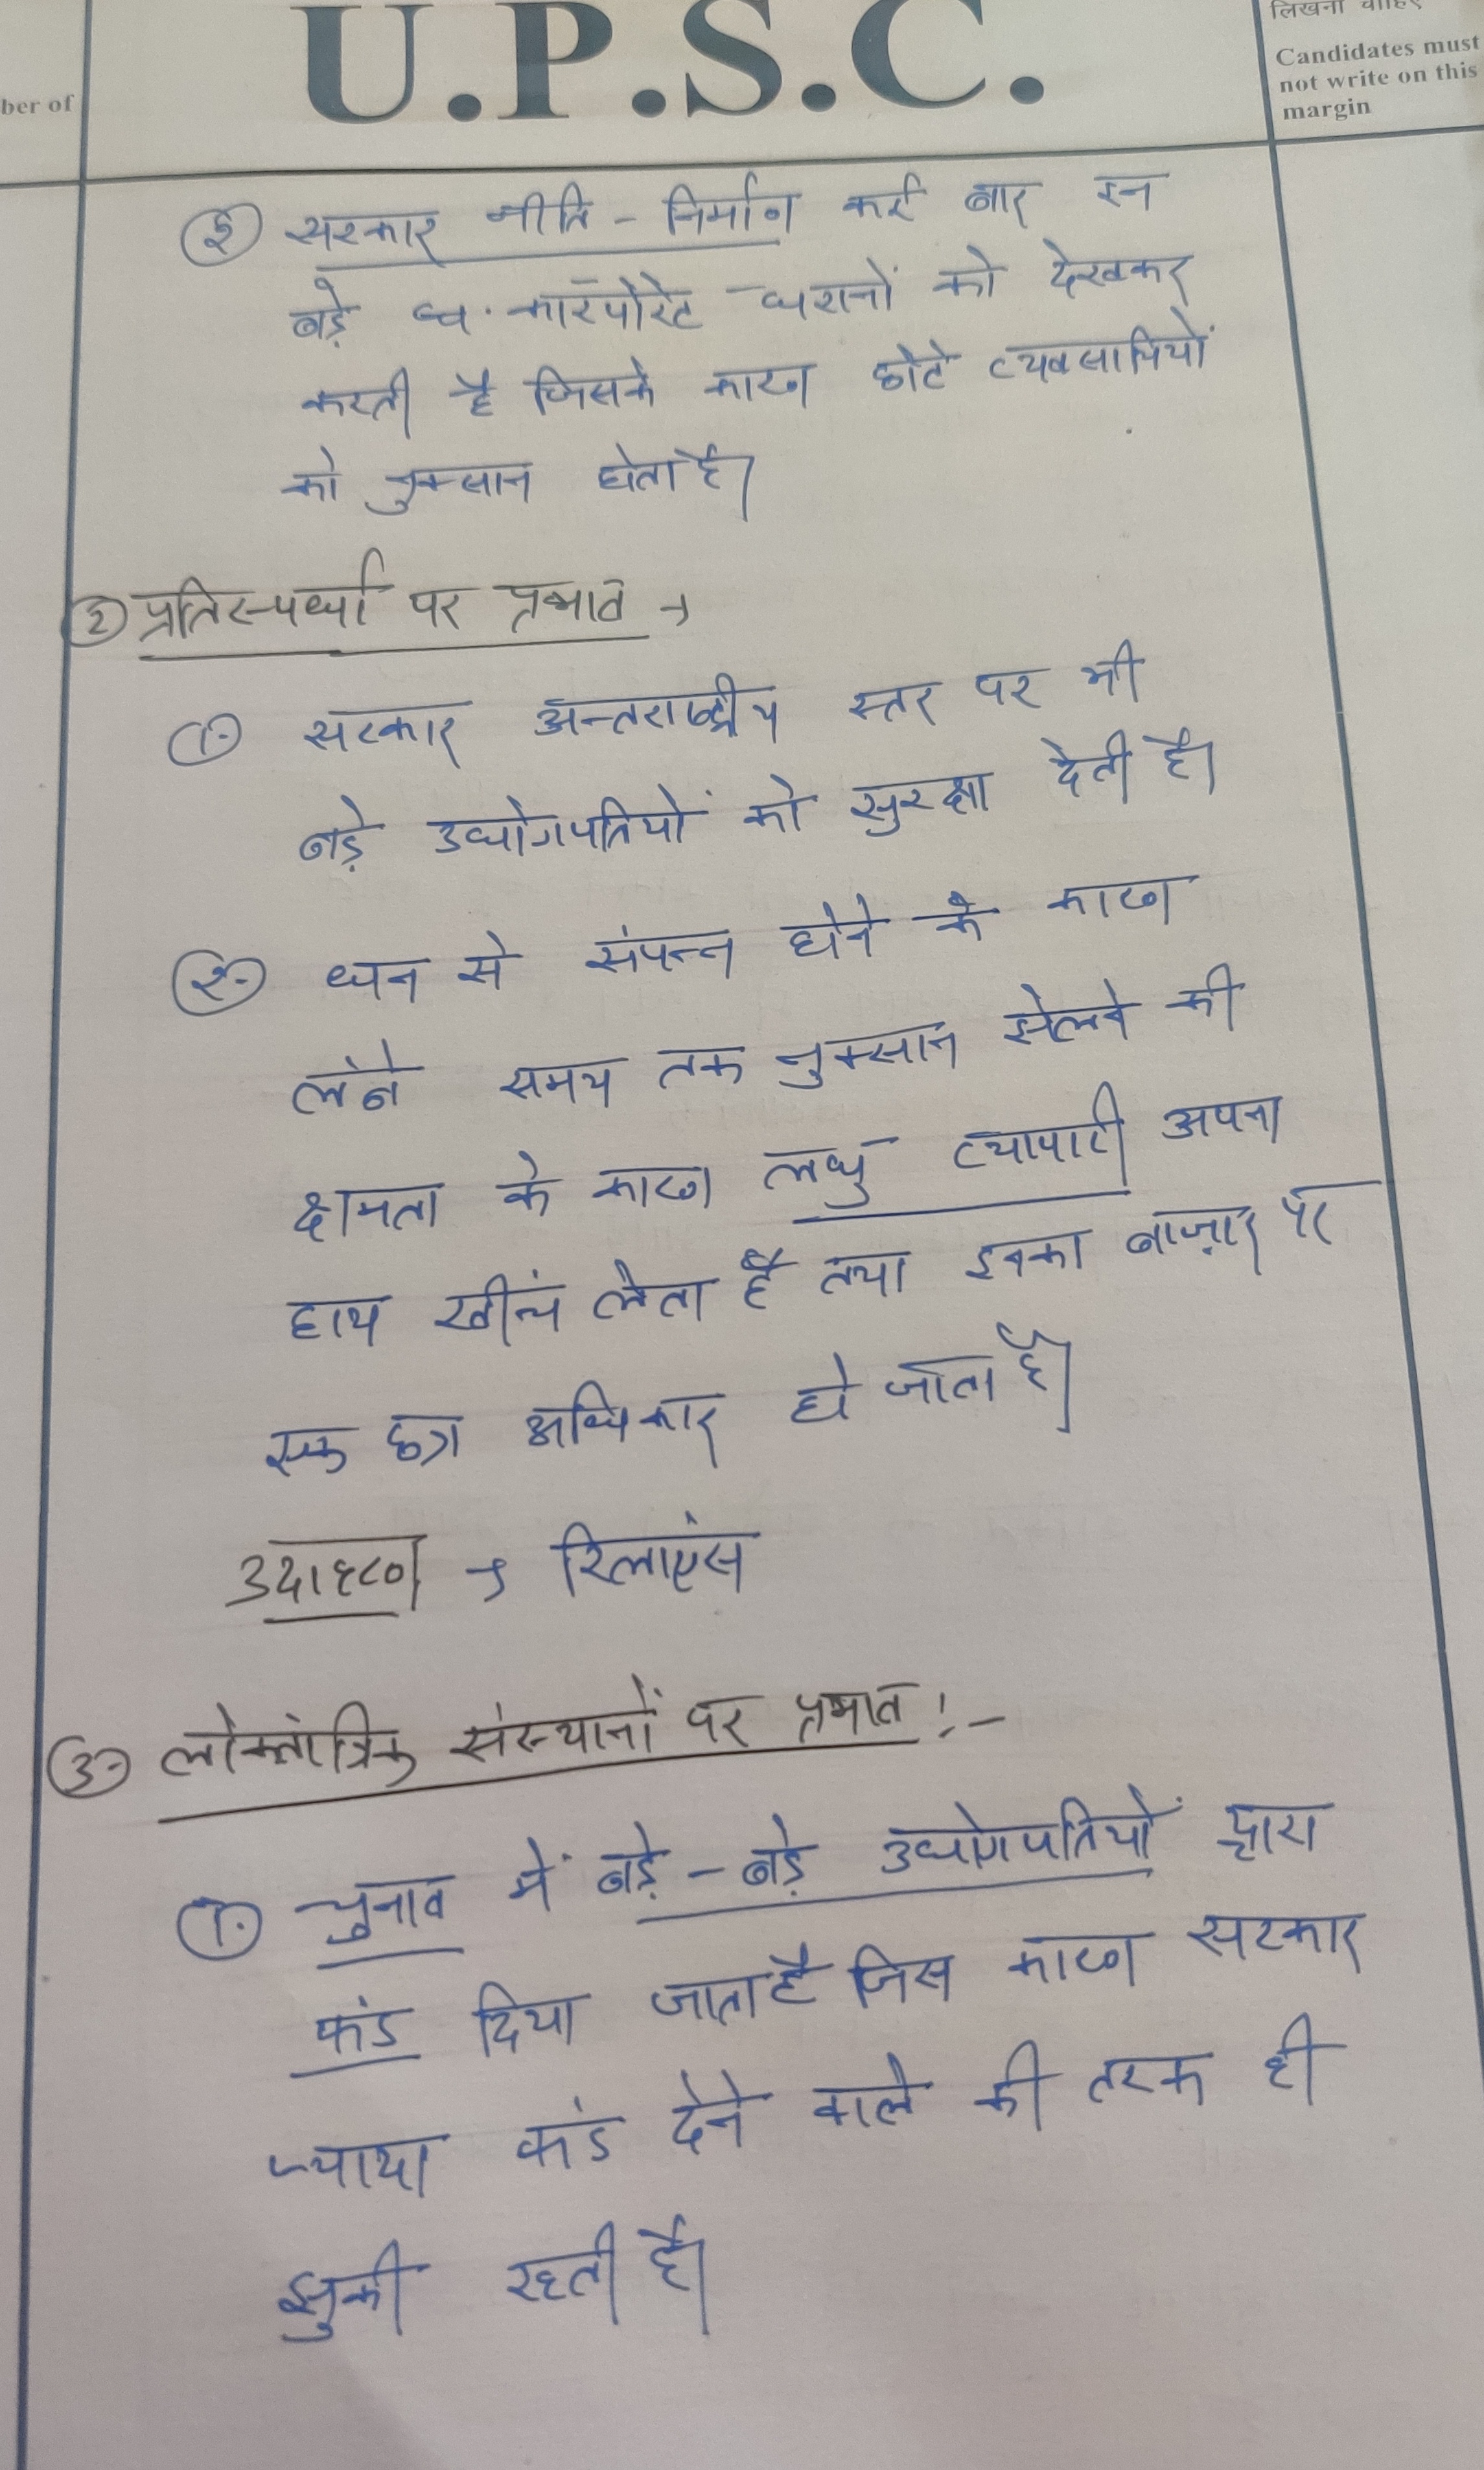 U.P.S.C.
ber of
Candidates must
not write on this
margin
सरकार नीति - निर्माण कई बार इन
बड़े कॉरपोरेट घरानों को देखकर
करती है जिसके कारण छोटे व्यवसायियों
को नुकसान होता है।
② प्रतिस्पर्धा पर प्रभाव →
① सरकार अन्तराष्ट्रीय स्तर पर भी
बड़े उधोगपतियों को सुरक्षा देती है।
②- धन से संपन्न होने के कारण
लंबे समय तक नुकसान झेलने की
क्षमता के कारण लघु व्यापारी अपना
हाथ खींच लेता है तथा इनका बाज़ार पर
एक छत्र अधिकार हो जाता है।
उदाहरण → रिलाएंस
③- लोकतांत्रिक संस्थानों पर प्रभाव :-
① चुनाव में बड़े - बड़े उधोगपतियों द्वारा
फंड दिया जाता है जिस कारण सरकार
ज्यादा फंड देने वाले की तरफ ही
झुकी रहती है।